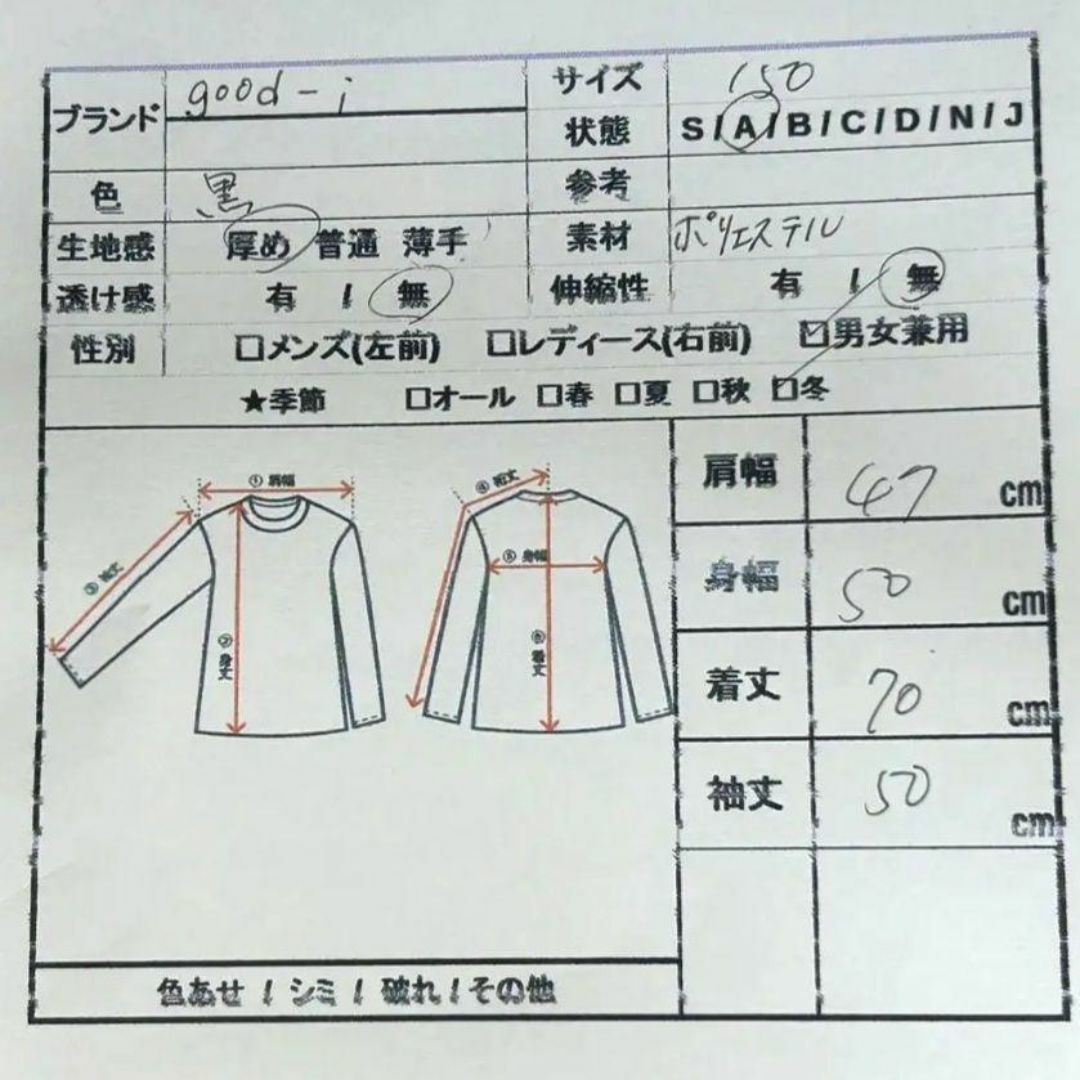 ブランド good-i サイズ 150
状態 S/A/B/C/D/N/J
色 黒 参考
生地感 厚め 普通 薄手 素材 ポリエステル
透け感 有 / 無 伸縮性 有 / 無
性別 □メンズ(左前) □レディース(右前) ☑男女兼用
★季節 □オール □春 □夏 □秋 ☑冬
① 肩幅
② 身丈
③ 袖丈
④ 裄丈
⑤ 身幅
⑥ 着丈
肩幅 47 cm
身幅 50 cm
着丈 70 cm
袖丈 50 cm
色あせ / シミ / 破れ / その他